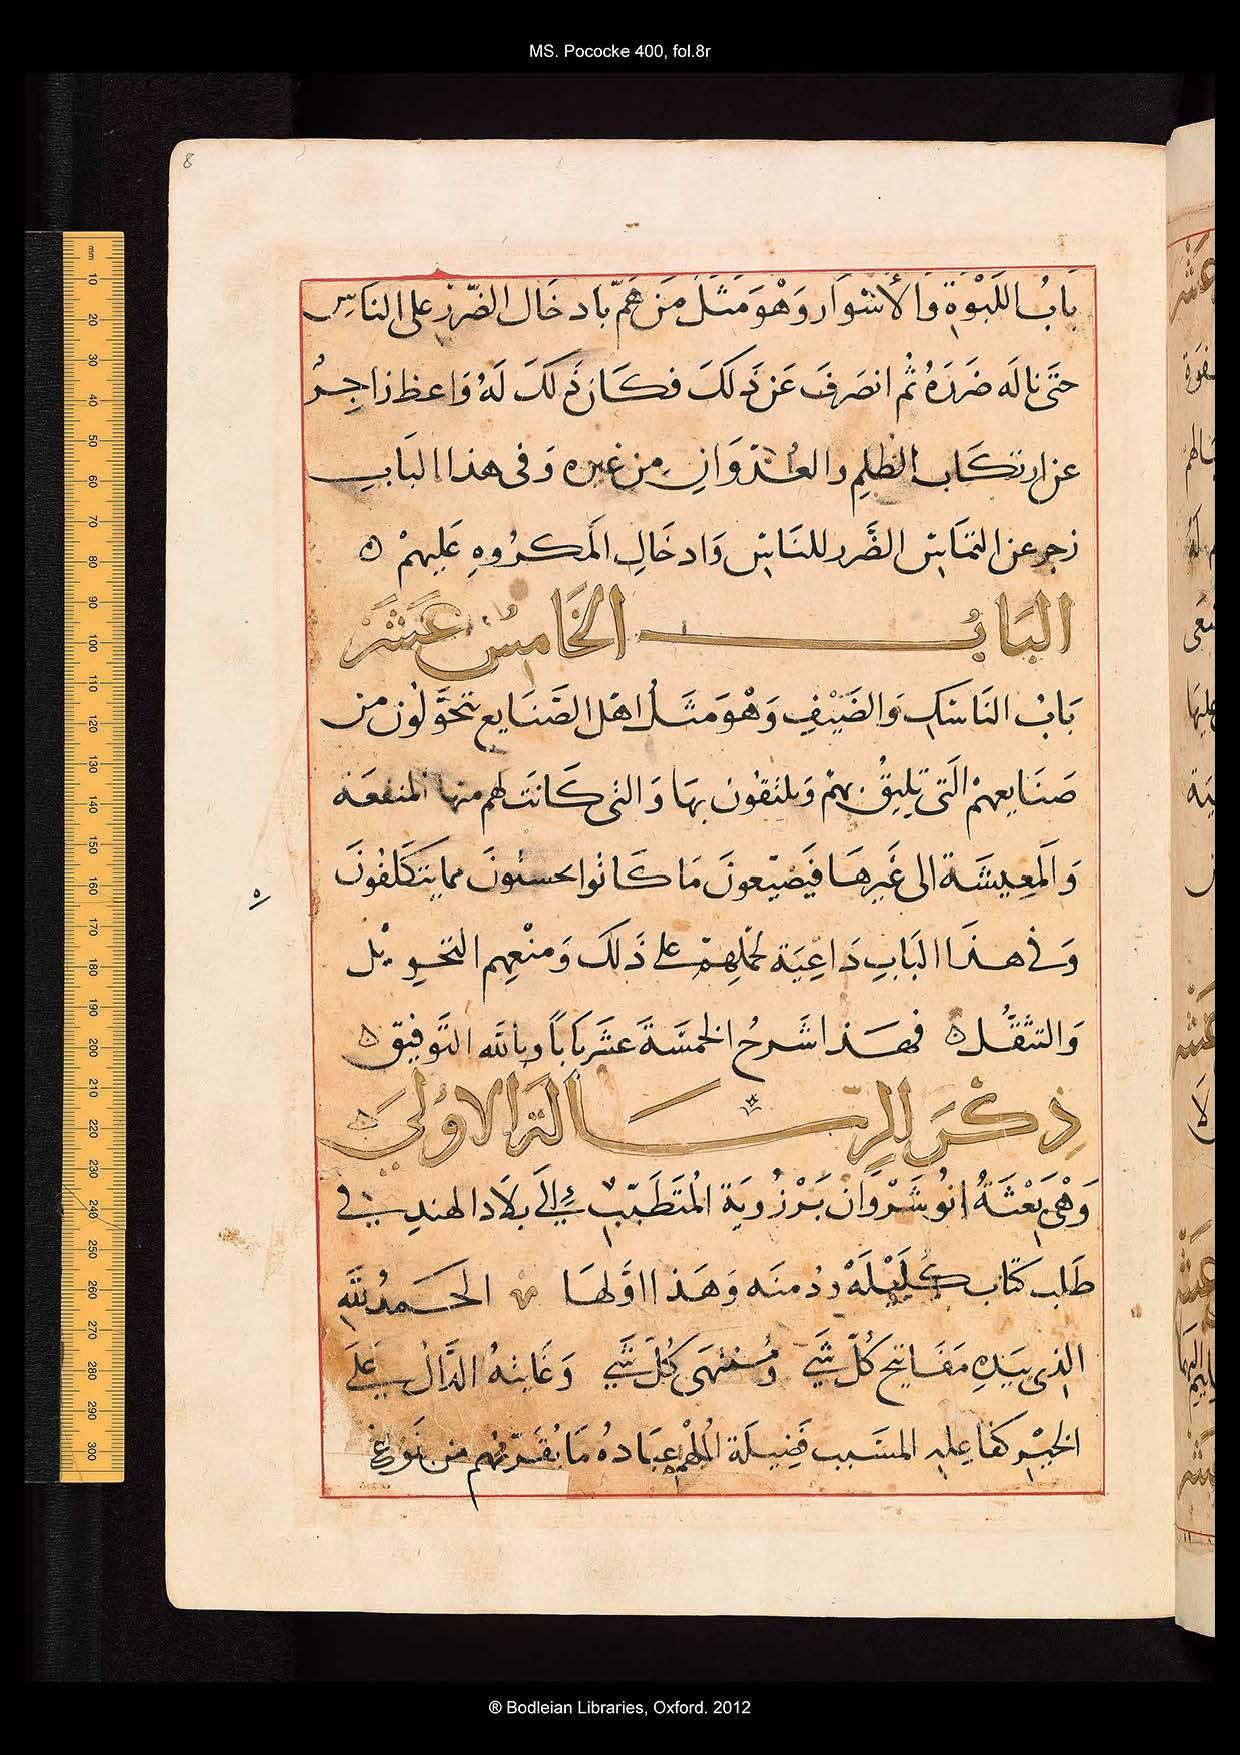 MS. Pococke 400, fol.8r
8
بَابُ اللَبْوَةِ وَالأشوَار وَهْوَ مَثَلُ مَن هَمّ بادخَال الضّرر على الناسِ
حتَى نالَه ضَررَهُ ثُم انصَرفَ عَن ذَلكَ فكَانَ ذَلكَ لَهُ وَاعظ زاجِرُ
عن ارتكَاب الظلمِ والعُدْوَانِ مِن غيره وَفى هذا البَابِ
زجر عن التمَاسِ الضَّرر للنَاسِ وَادخَالِ المَكرُوهِ عَليهمْ ۞
البَابُ الخَامِسُ عَشَرَ
بَابُ النَاسَكِ وَالضَيْفِ وَهْوَ مثَلُ اهْل الصَّنَايع يَتحَوَّلوُن من
صَنَايعهمْ الَتى تَليقُ بهمْ وَيلتقوُن بهَا وَالتى كَانَت لهم منها المنفعَة
وَالمَعِيشَة الى غَيرِهَا فَيضيّعونَ مَا كَانُوا يحسنُونَ مما يَتَكَلفُونَ
وَفى هذَا البَابِ دَاعِيَة لحَملِهمْ على ذَلكَ وَمنْعِهم التحويْل
وَالتنَقُّل ۞ فهَذا شَرحُ الخمسَةَ عشَر بَاباً وبالله التَّوفيق ۞
ذِكْرَ الرِسَالَة الاوُلىَ
وَهْىَ بَعْثَةُ انُوشَرْوَانْ بَرْزُويَة المُتَطَبّبُ إِلَى بلاَد الهندِ فى
طَلبِ كتَاب كَلَيْلَهْ وَدُمنَه وَهَذا اوَّلهَا الحَمدُ للَّهِ
الذى بيَدِهِ مَفَاتيح كُلّ شَىٍ وَمُنتهَى كُلّ شَىٍ وَغَايتهُ الدَّالُ عَلَى
الخيْر كفاعِلِهِ المسَبب فَضِيلَة المُلْهِم عِبَادهُ مَا يُقَرّبُهم من نَوافِع
® Bodleian Libraries, Oxford. 2012